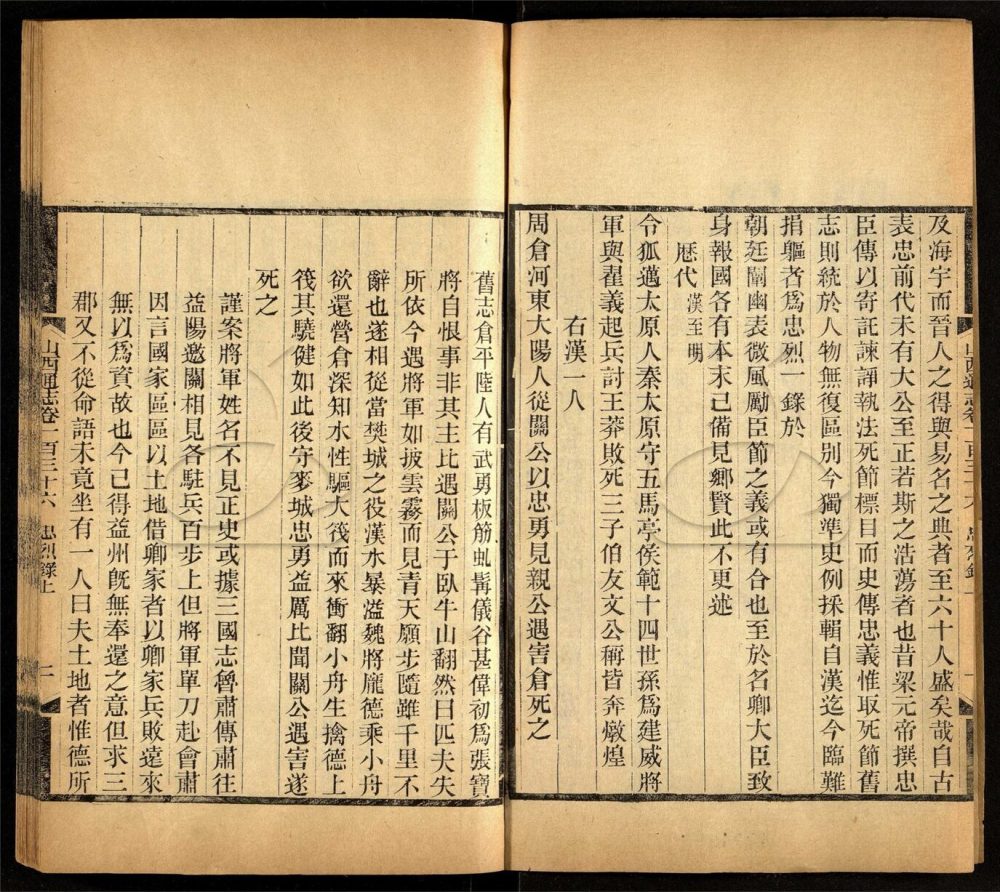 及海宇而晉人之得與易名之典者至六十人盛矣哉自古
表忠前代未有大公至正若斯之浩蕩者也昔梁元帝撰忠
臣傳以寄託諫諍執法死節標目而史傳忠義惟取死節舊
志則統於人物無復區別今獨準史例採輯自漢迄今臨難
捐軀者爲忠烈一錄於
朝廷闡幽表微風勵臣節之義或有合也至於名卿大臣致
身報國各有本末已備見鄉賢此不更述
歷代漢至明
令狐邁太原人秦太原守五馬亭侯範十四世孫爲建威將
軍與翟義起兵討王莽敗死三子伯友文公稱皆奔燉煌
右漢一人
周倉河東大陽人從關公以忠勇見親公遇害倉死之
舊志倉平陸人有武勇板筋虬髯儀谷甚偉初爲張寶
將自恨事非其主比遇關公于臥牛山翻然曰匹夫失
所依今遇將軍如披雲霧而見青天願步隨雖千里不
辭也遂相從當樊城之役漢水暴溢魏將龐德乘小舟
欲還營倉深知水性驅大筏而來衝翻小舟生擒德上
筏其驍健如此後守麥城忠勇益厲比聞關公遇害遂
死之
謹案將軍姓名不見正史或據三國志魯肅傳肅往
益陽邀關相見各駐兵百步上但將軍單刀赴會肅
因言國家區區以土地借卿家者以卿家兵敗遠來
無以爲資故也今已得益州旣無奉還之意但求三
郡又不從命語未竟坐有一人曰夫土地者惟德所
山西通志卷一百三十六 忠烈錄上 二